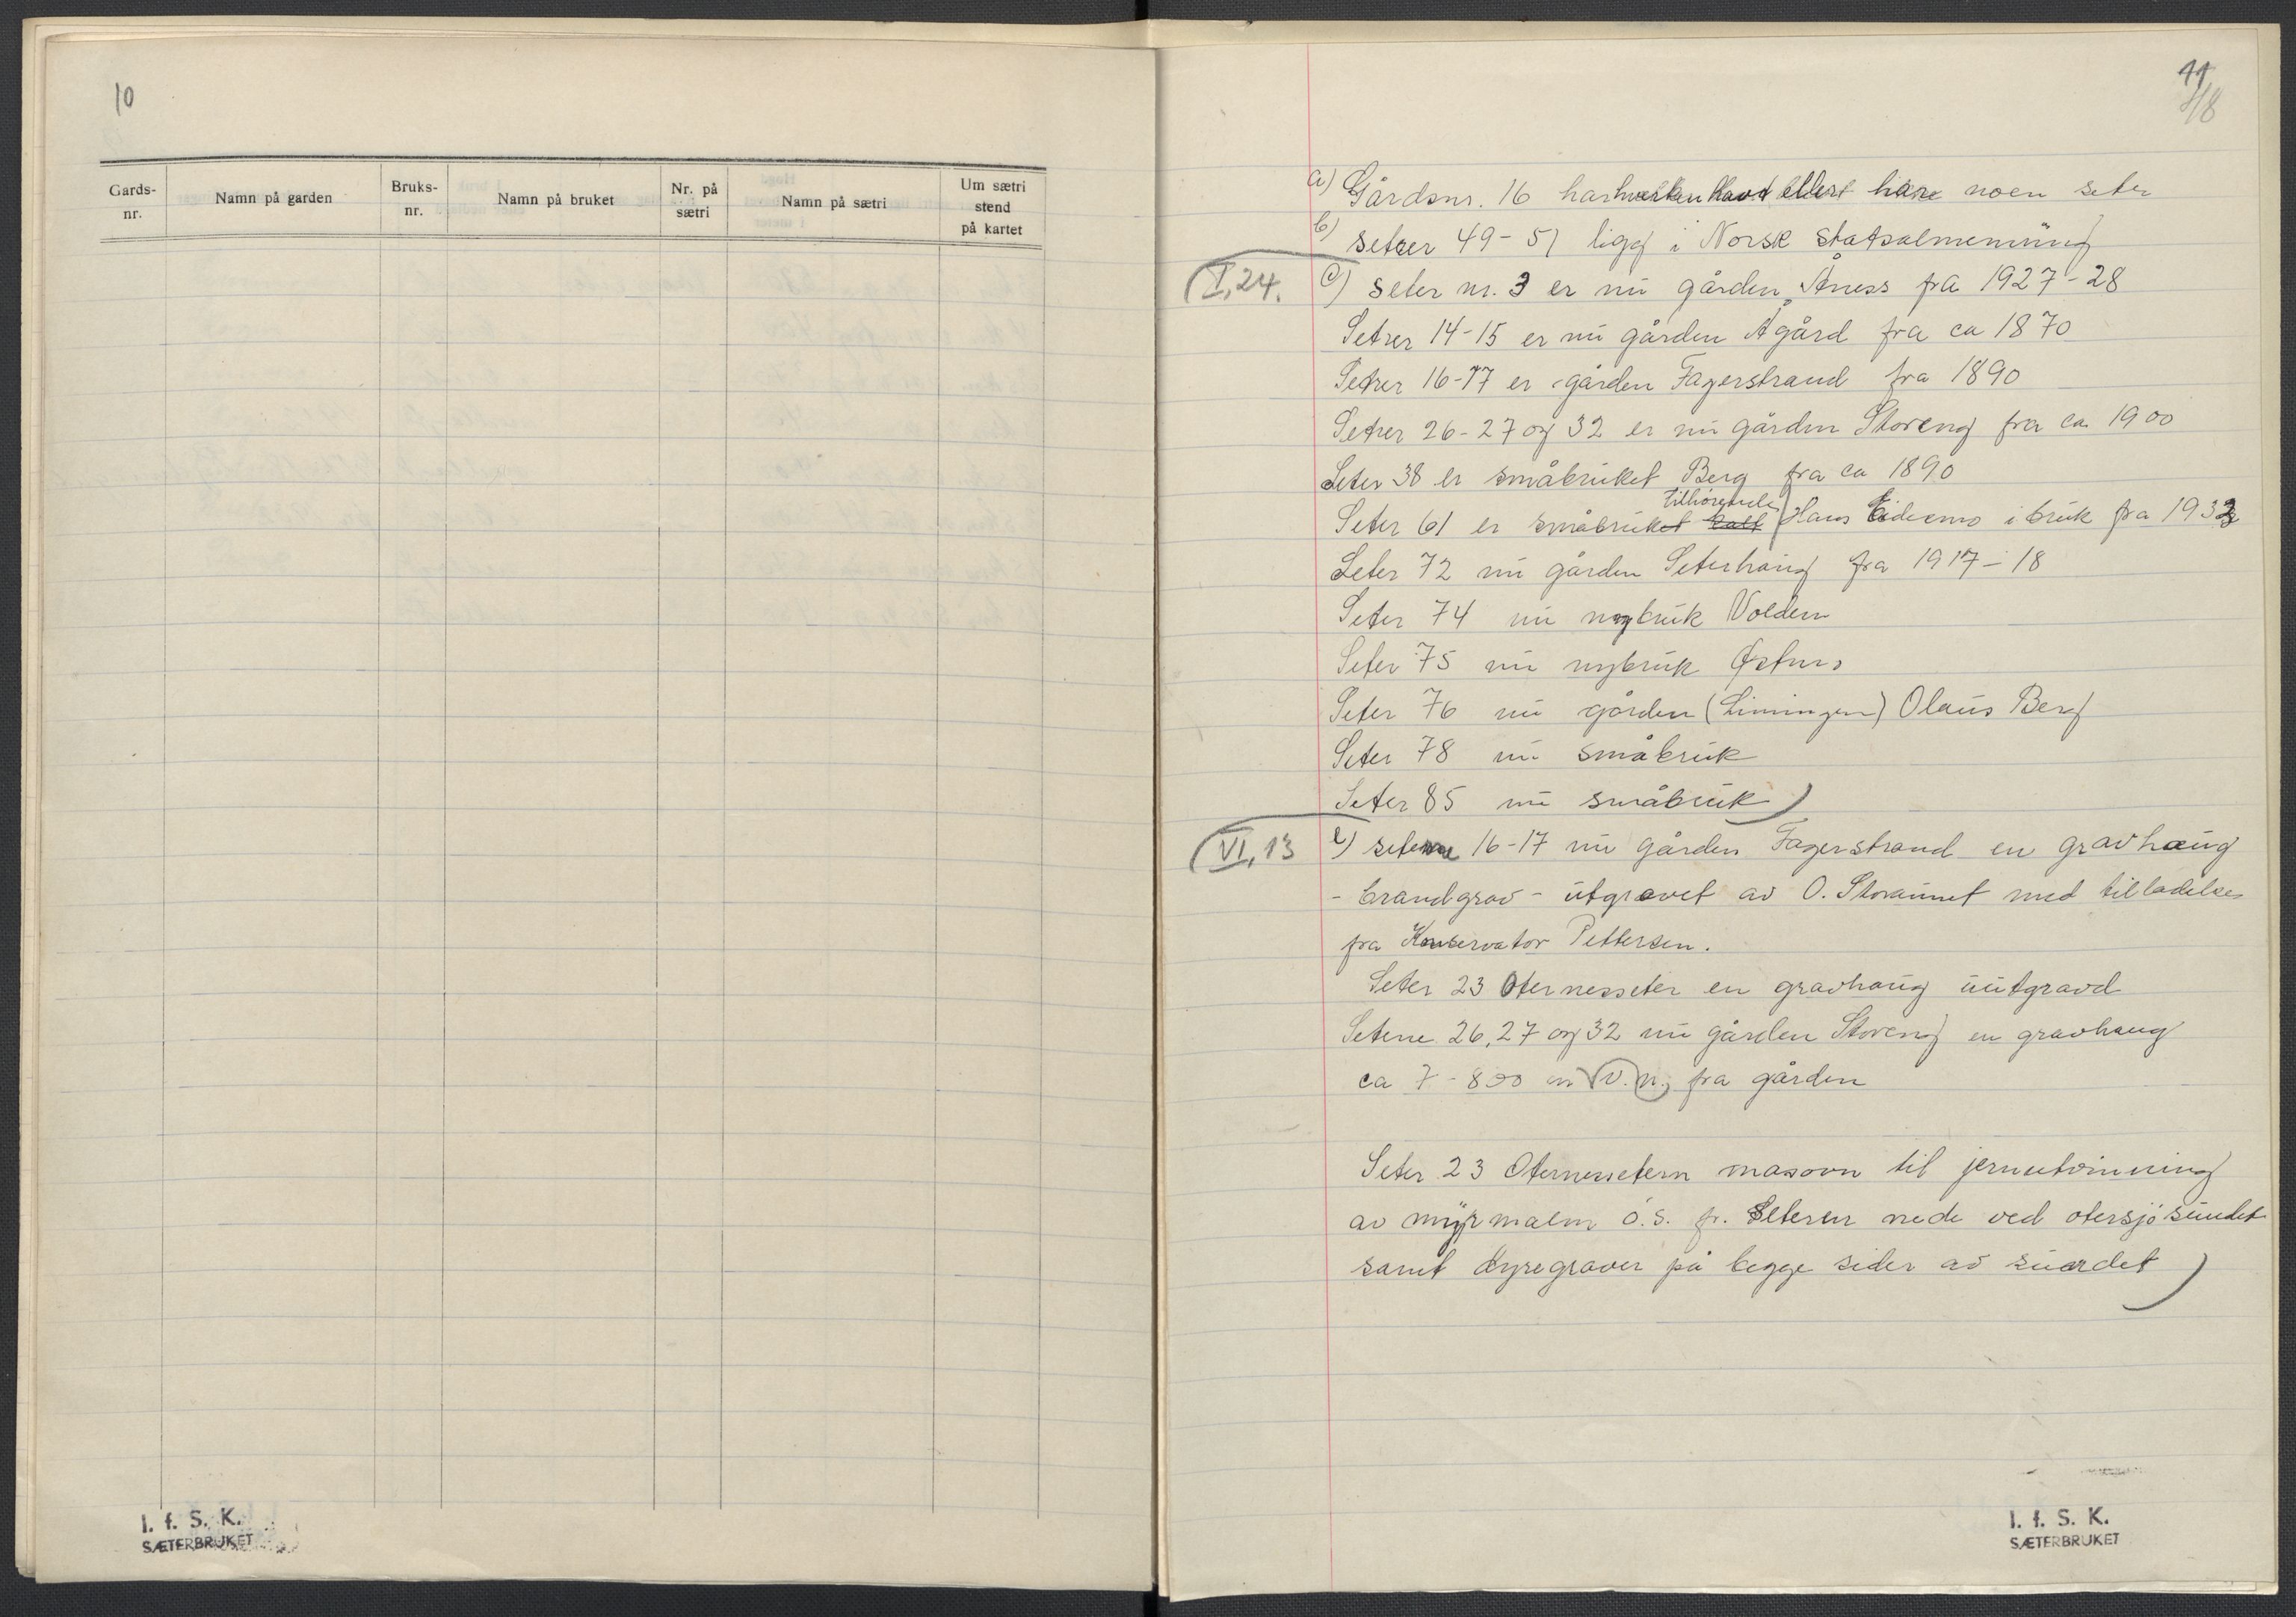 10
Gards-
nr.
Namn på garden
Bruks-
nr.
Namn på bruket
Nr. på
sætri
Namn på sætri
Um sætri
stend
på kartet
I. f. S. K.
SÆTERBRUKET
11
a) Gårdsnr. 16 har hverken havt ellers har noen seter
b) setrer 49-51 ligg i Norsk statsalmenning
(I, 24. c) seter nr. 3 er nu gården Åness fra 1927-28
Setrer 14-15 er nu gården Ågård fra ca 1870
Setrer 16-17 er gården Fagerstrand fra 1890
Setrer 26-27 og 32 er nu gården Storeng fra ca 1900
Seter 38 er småbruket Berg fra ca 1890
tilhørende
Seter 61 er småbruket kalt Hans Eidesmo i bruk fra 1932
Seter 72 nu gården Seterhaug fra 1917-18
Seter 74 nu nybruk Volden
Seter 75 nu nybruk Østnes
Seter 76 nu gården (Limingen) Olaus Berg
Seter 78 nu småbruk
Seter 85 nu småbruk)
(VI, 13 e) seterne 16-17 nu gården Fagerstrand en gravhaug
- brandgrav - utgravet av O. Storaunet med tilladelse
fra Konservator Pettersen.
Seter 23 Oternesseter en gravhaug uutgravd
Setene 26, 27 og 32 nu gården Storeng en gravhaug
ca 7-800 m V.n. fra gården
Seter 23 Oternessetern masovn til jernutvinning
av myrmalm ö.s. fr. Seteren nede ved otersjösundet
samt dyregraver på begge sider av sundet)
I. f. S. K.
SÆTERBRUKET